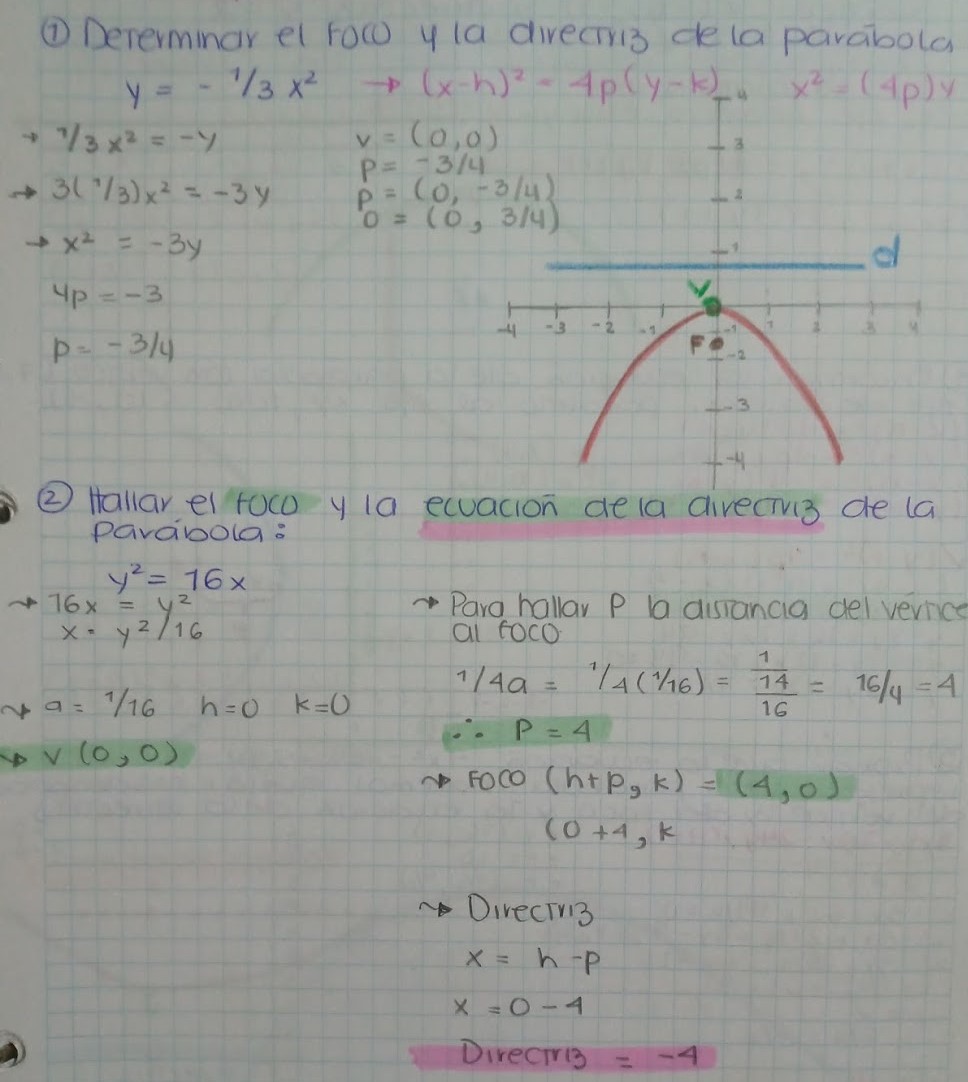 ① Determinar el foco y la directriz de la parábola
y = - 1/3 x² → (x-h)² = 4p(y-k) x² = (4p)y
→ 1/3 x² = -y
→ 3(1/3)x² = -3y
→ x² = -3y
4p = -3
p = -3/4
v = (0,0)
p = -3/4
p = (0, -3/4)
0 = (0, 3/4)
4
3
2
1
d
V
-4 -3 -2 -1 1 2 3 4
-1
F
-2
-3
-4
② Hallar el foco y la ecuación de la directriz de la
parábola:
y² = 16x
→ 16x = y²
x = y²/16
→ a = 1/16 h=0 k=0
→ V (0,0)
→ Para hallar P la distancia del vértice
al foco
1/4a = 1/4(1/16) = 1/14/16 = 16/4 = 4
∴ P = 4
→ Foco (h+p, k) = (4,0)
(0+4, k
→ Directriz
x = h-p
x = 0-4
Directriz = -4